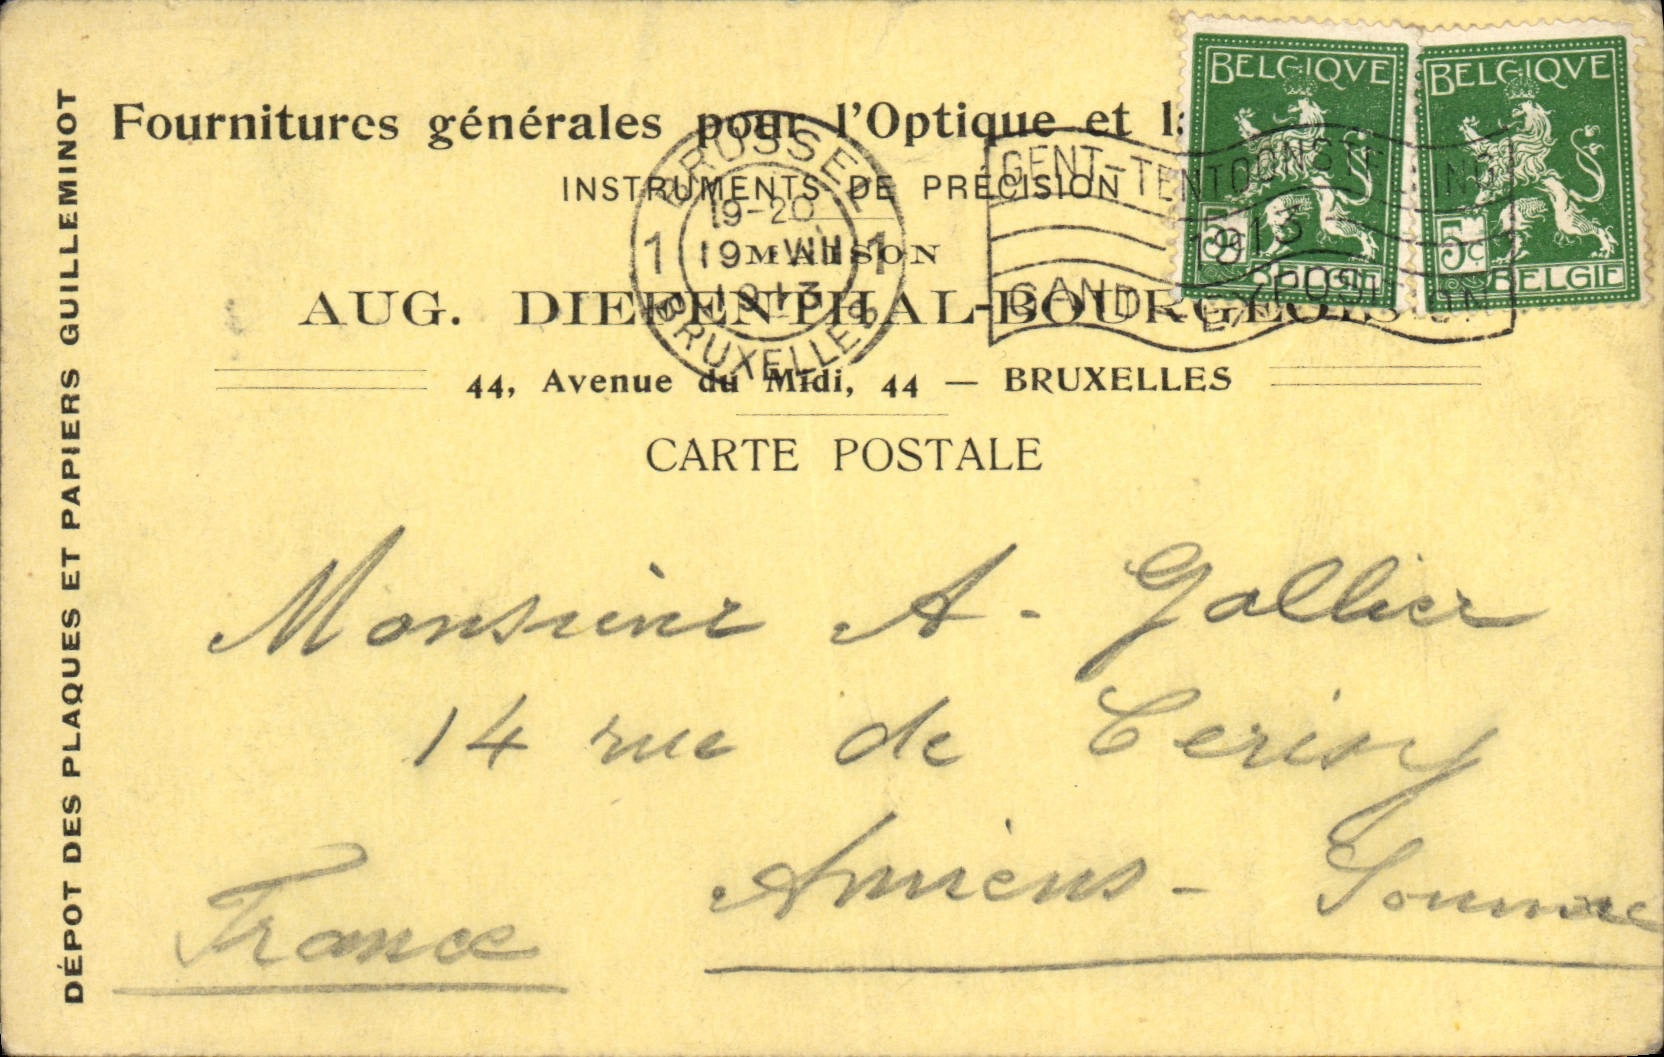 DÉPOT DES PLAQUES ET PAPIERS GUILLEMINOT
Fournitures générales pour l'Optique et
INSTRUMENTS DE PRÉCISION
MAISON
AUG. DIEFENTHAL-BOURGEOIS
44, Avenue du Midi, 44 — BRUXELLES
CARTE POSTALE
BELGIQVE
5c
BELGIË
BELGIQVE
5c
BELGIË
BRUSSEL
19-20
1 19 VIII 1
1913
BRUXELLES
GENT-TENTOONSTELLING
1913
GAND EXPOSITION
Monsieur A. Gallier
14 rue de Cerisy
Amiens - Somme
France